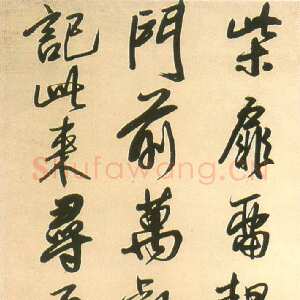 柴扉
門前萬
記此來尋
Shufawang.cn